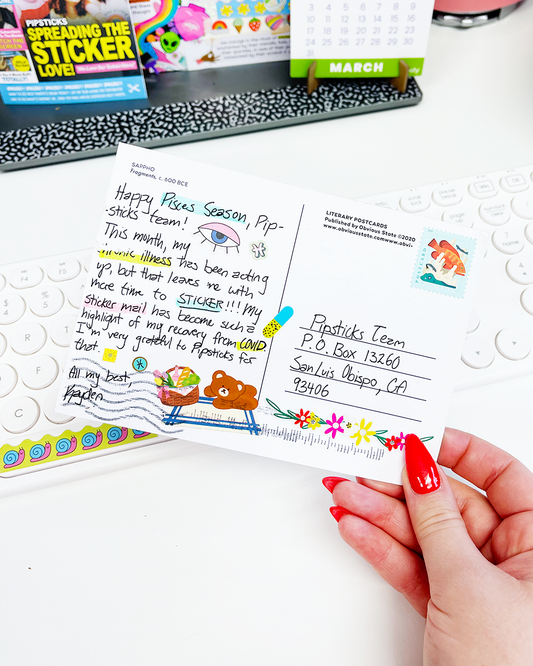 PIPSTICKS
SPREADING THE
STICKER
LOVE!
TOTALLY!
MARCH
SAPPHO
Fragments, c. 600 BCE
Happy Pisces Season, Pip-
sticks team!
This month, my
chronic illness has been acting
up, but that leaves me with
more time to STICKER!!! My
sticker mail has become such a
highlight of my recovery from COVID.
I'm very grateful to Pipsticks for
that.
All my best,
Kayden
LITERARY POSTCARDS
Published by Obvious State ©2020
www.obviousstate.com
Pipsticks Team
P.O. Box 13260
San Luis Obispo, CA
93406